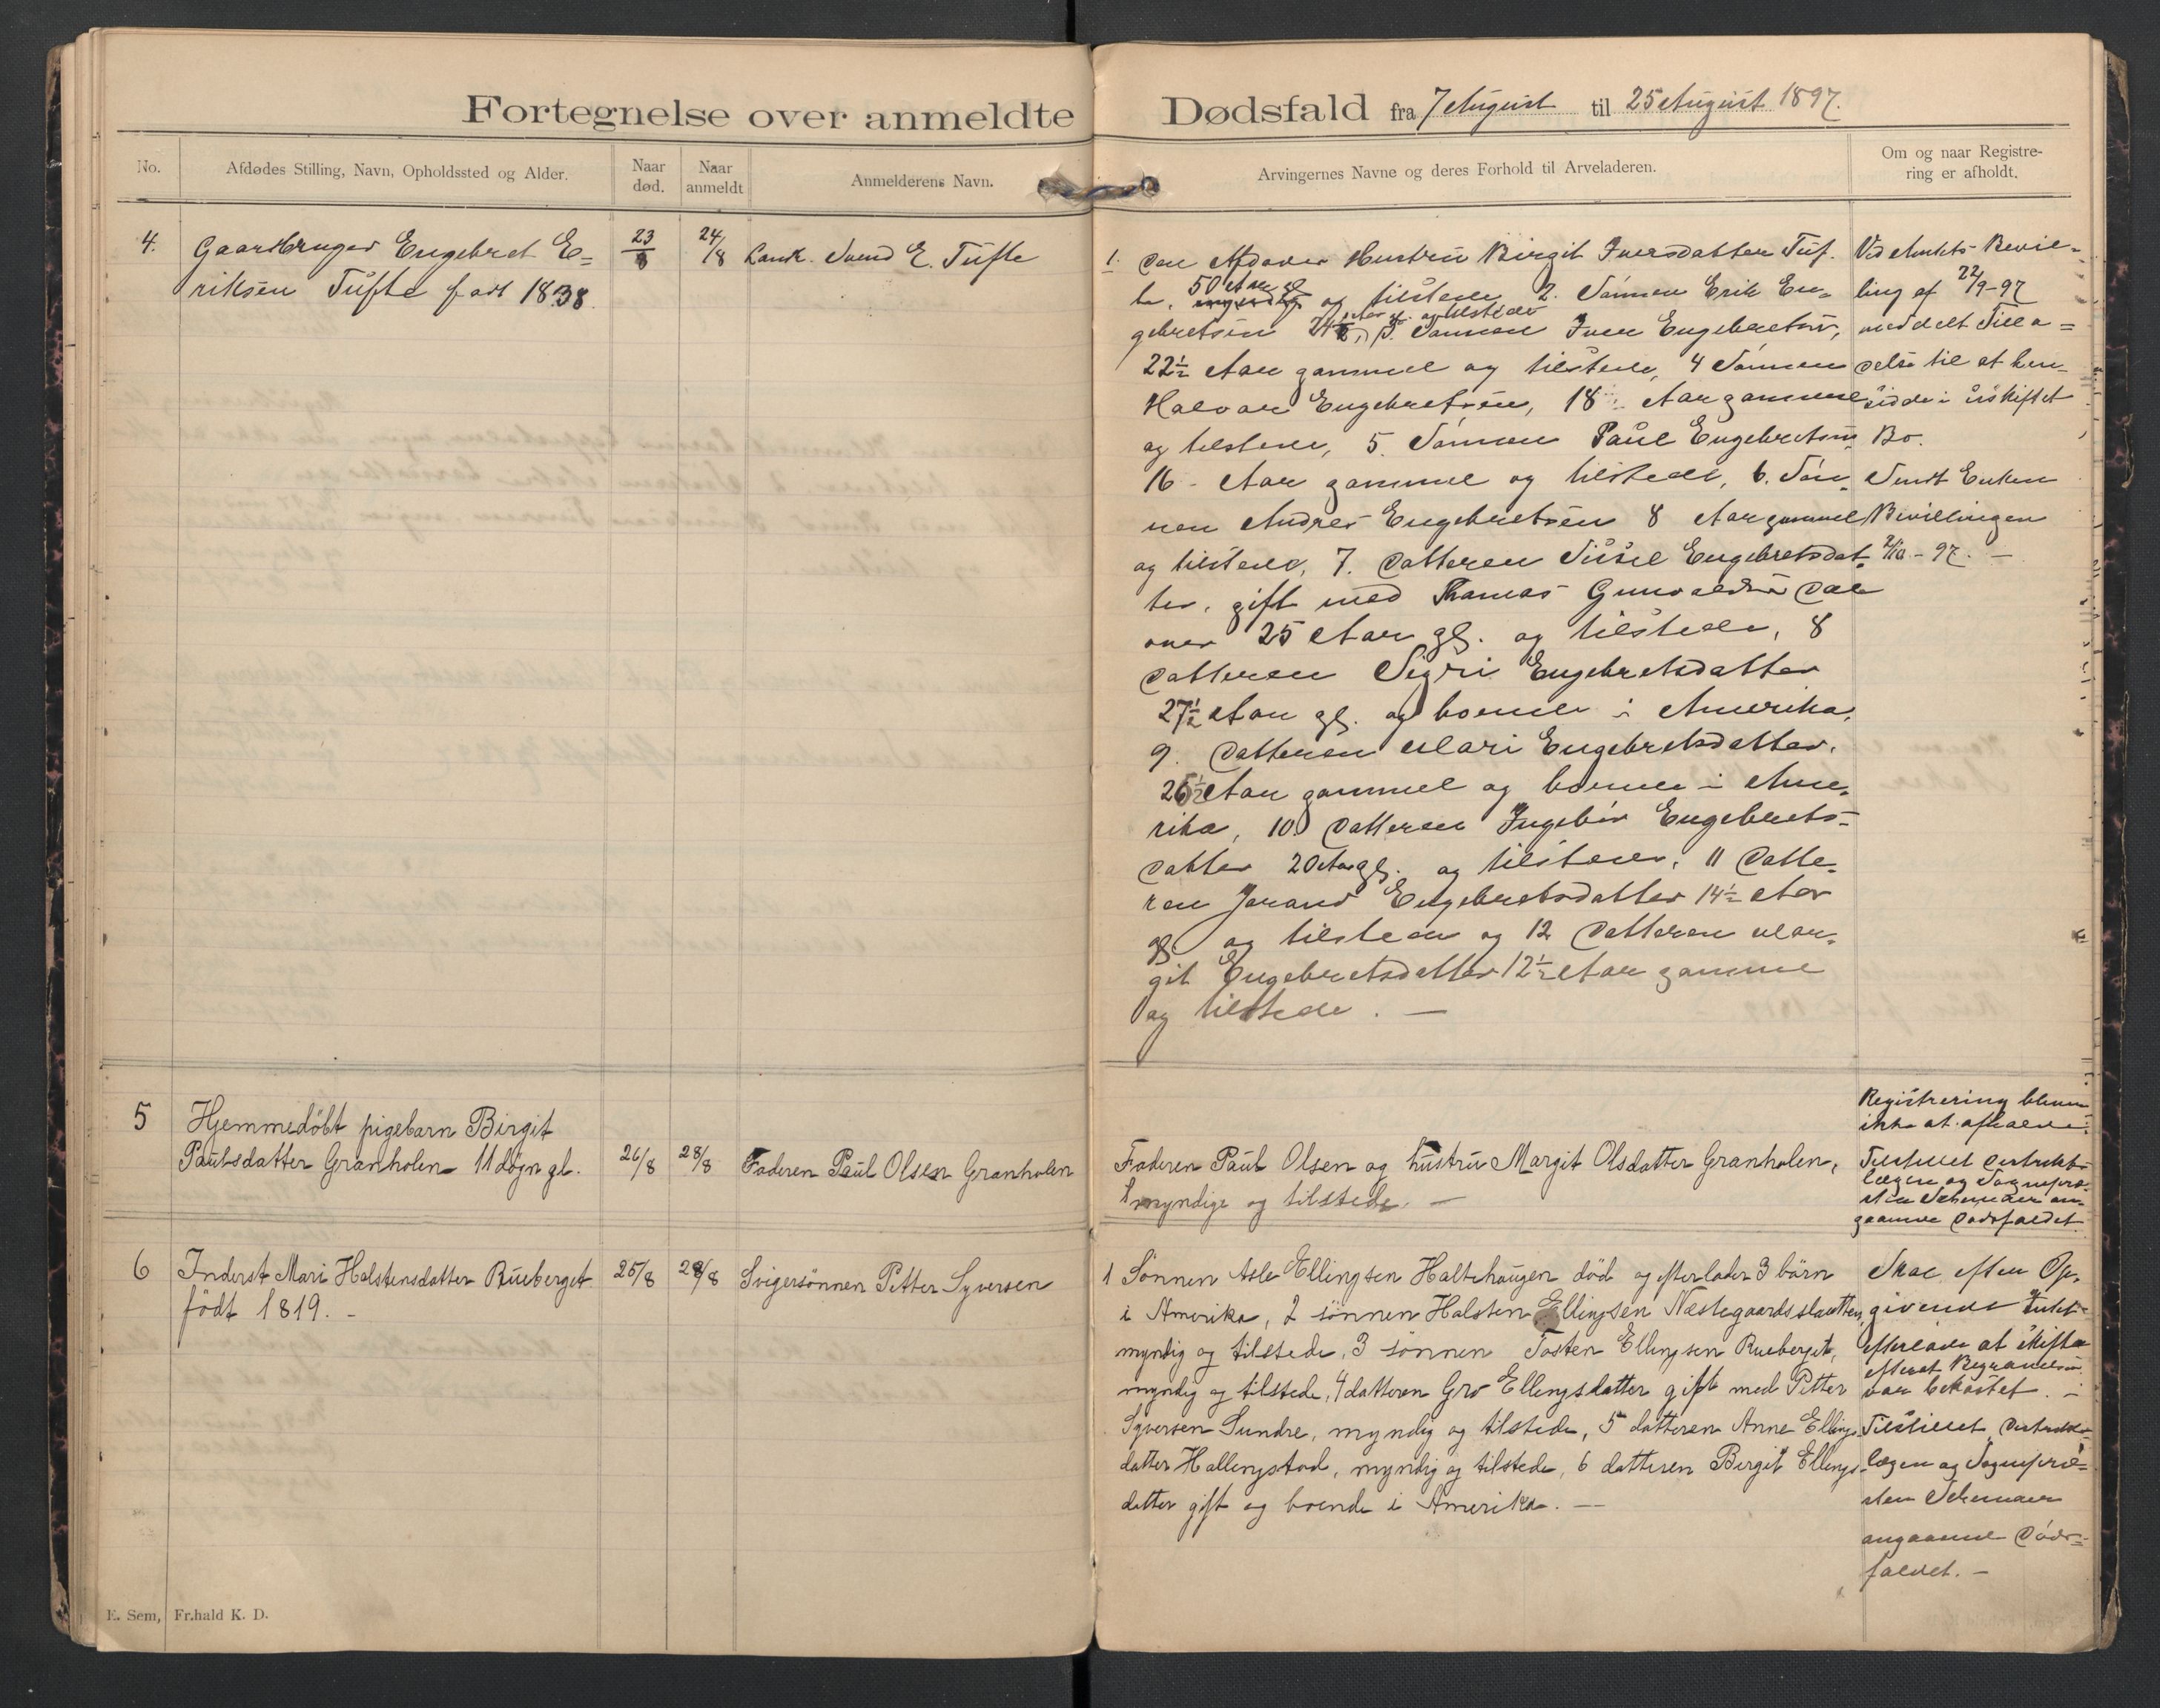 Fortegnelse over anmeldte Dødsfald fra 7 August til 25 August 1897.
No.
Afdødes Stilling, Navn, Opholdssted og Alder.
Naar død.
Naar anmeldt
Anmelderens Navn.
Arvingernes Navne og deres Forhold til Arveladeren.
Om og naar Registre-
ring er afholdt.
4.
Gaardbruger Engebret E=
riksen Tufte født 1838.
23/8
24/8
Lensk. Svend E. Tufte
1. Den Afdødes Hustru Birgit Iversdatter Tuf-
te, 50 Aar gl og tilstede 2. Sønnen Erik En=
gebretsen 24½ Aar gl. og tilstede, 3. Sønnen Iver Engebretsen,
22½ Aar gammel og tilstede, 4 Sønnen
Halvor Engebretsen, 18 Aar gammel
og tilstede, 5. Sønnen Paul Engebretsen
16 - Aar gammel og tilstede, 6. Søn-
nen Andres Engebretsen 8 Aar gammel
og tilstede, 7. Datteren Sissel Engebretsdat-
ter, gift med Thomas Gunvaldsen Dal
over 25 Aar gl. og tilstede, 8
Datteren Sigri Engebretsdatter
27½ Aar gl. og boende i Amerika,
9. Datteren Mari Engebretsdatter,
26½ Aar gammel og boende i Ame-
rika, 10 Datteren Ingebør Engebrets-
datter 20 Aar gl. og tilstede, 11 Datte-
ren Jorand Engebretsdatter 14½ Aar
gl. og tilstede og 12 Datteren Mar-
git Engebretsdatter 12½ Aar gammel
og tilstede. —
Ved Amtets Bevil-
ling af 22/9-97
meddelt Tilla=
delse til at hen-
sidde i uskiftet
Bo.
Sendt Enken
Bevillingen
2/10-97. —
5
Hjemmedøbt pigebarn Birgit
Paulsdatter Granholen 11 døgn gl.
26/8
28/8
Faderen Paul Olsen Granholen
Faderen Paul Olsen og hustru Margit Olsdatter Granholen,
myndige og tilstede. —
Registrering bliver
ikke at afholde.
Tilstillet Distrikts-
lægen og Sognepræ-
sten Schemaer an-
gaaende Dødsfaldet.
6
Inderst Mari Halstensdatter Rueberget
født 1819. -
25/8
28/8
Svigersønnen Petter Syversen
1 Sønnen Asle Ellingsen Haltehaugen død og efterlader 3 børn
i Amerika, 2 sønnen Halsten Ellingsen Næstegaardsslaatten,
myndig og tilstede, 3 sønnen Tosten Ellingsen Rueberget,
myndig og tilstede, 4 datteren Gro Ellingsdatter gift med Petter
Syversen Sundre, myndig og tilstede, 5 datteren Anne Ellings-
datter Hallingstad, myndig og tilstede, 6 datteren Birgit Ellings-
datter gift og boende i Amerika. —
Skal efter Op-
givende Intet
efterlade at skifte
efterat Begravelsen
var bekostet. -
Tilstillet Distrikts-
lægen og Sognepræ-
sten Schemaer
angaaende Døds-
faldet. -
E. Sem, Fr.hald K. D.